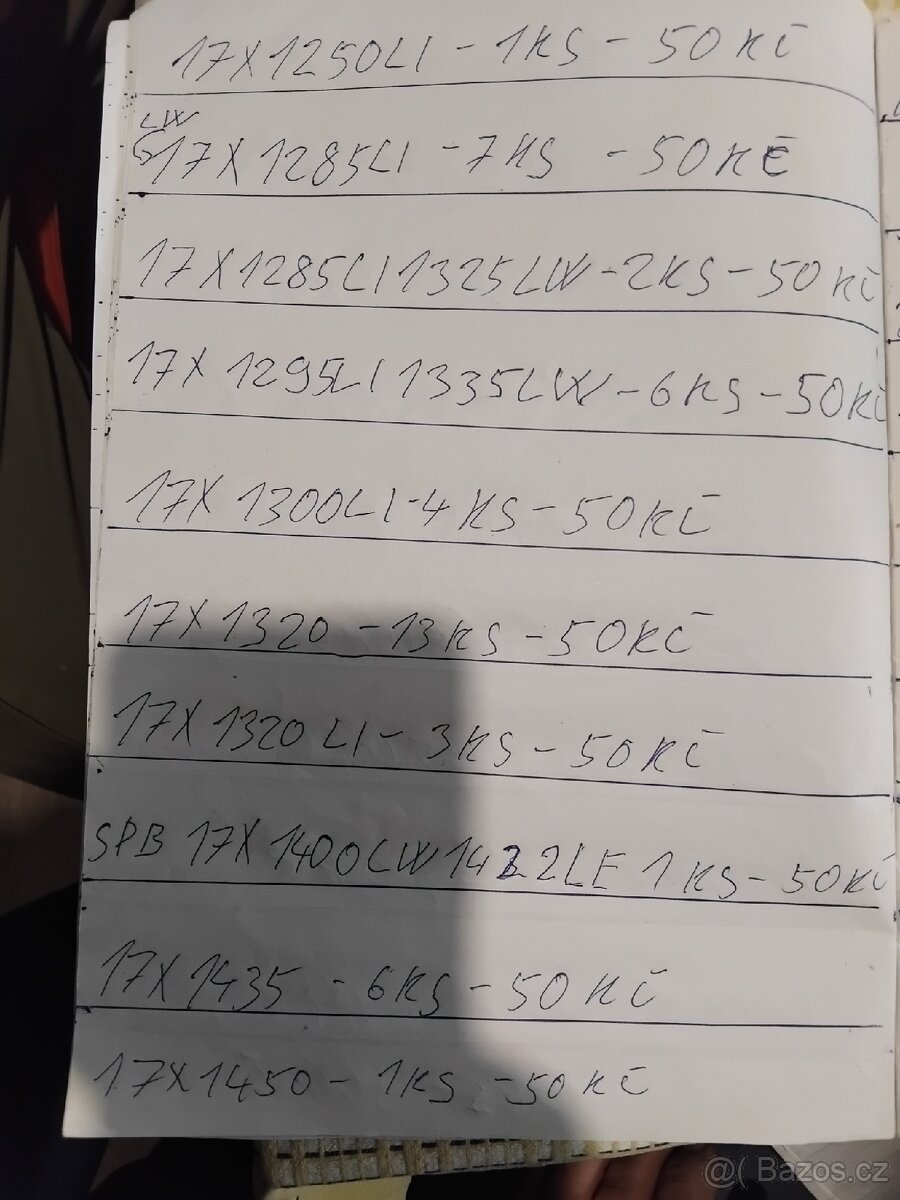 17X1250LI - 1KS - 50 KČ
LW
17X1285LI - 7KS - 50KČ
17X1285LI 1325LW - 2KS - 50 KČ
17X 1295LI 1335LW - 6KS - 50KČ
17X 1300LI - 4 KS - 50KČ
17X1320 - 13KS - 50KČ
17X1320 LI - 3KS - 50KČ
SPB 17X1400LW 1422LE 1 KS - 50KČ
17X1435 - 6KS - 50 KČ
17X1450 - 1KS - 50 KČ
@( Bazos.cz